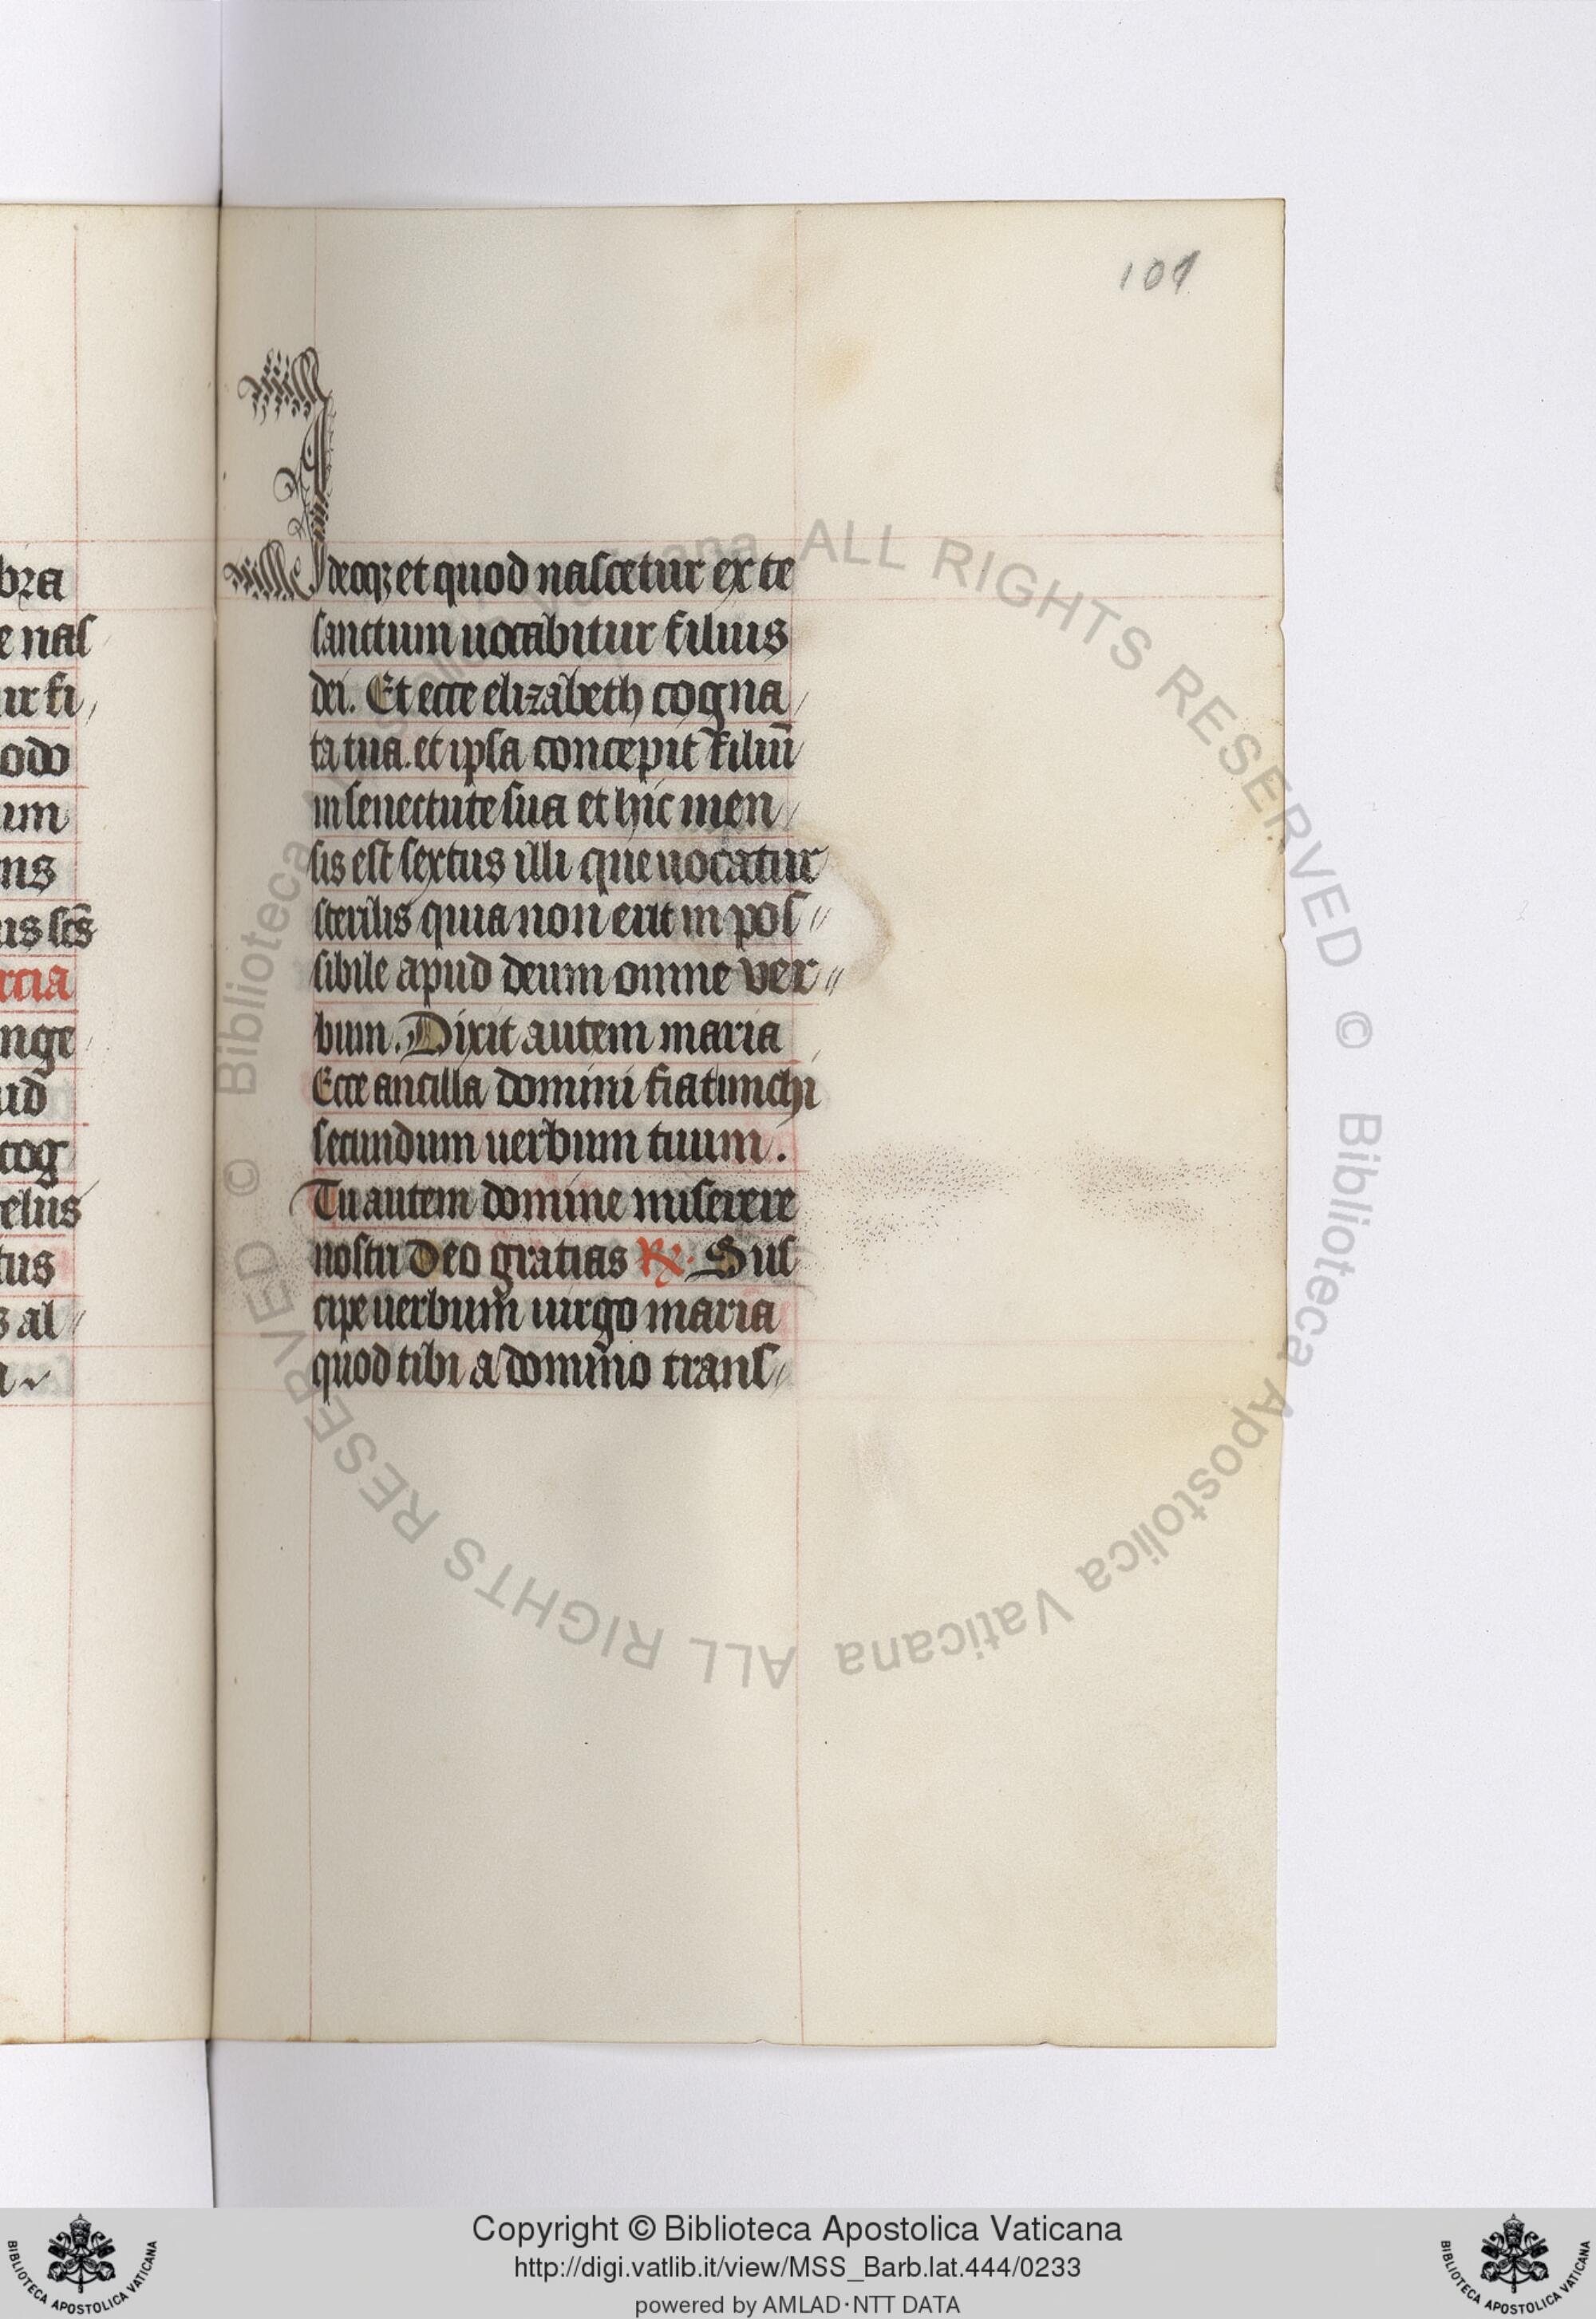 101
bra
e nas
ur fi
odo
um
ens
us sc̄s
rcia
nge
ud
cog
elius
tus
s al
Ideoqꝫ et quod nascetur ex te
sanctum uocabitur filius
dei. Et ecce elizabeth cogna
ta tua. et ipsa concepit filiū
in senectute sua et hic men
sis est sextus illi que uocatur
sterilis quia non erit in pos
sibile apud deum omne ver
bum. Dixit autem maria
Ecce ancilla domini fiat michi
secundum uerbum tuum.
Tu autem domine miserere
nostri Deo gratias ℟. Sus
cipe uerbum uirgo maria
quod tibi a domino trans
© Biblioteca Apostolica Vaticana ALL RIGHTS RESERVED © Biblioteca Apostolica Vaticana ALL RIGHTS RESERVED
Copyright © Biblioteca Apostolica Vaticana
http://digi.vatlib.it/view/MSS_Barb.lat.444/0233
powered by AMLAD·NTT DATA
BIBLIOTECA APOSTOLICA VATICANA
BIBLIOTECA APOSTOLICA VATICANA